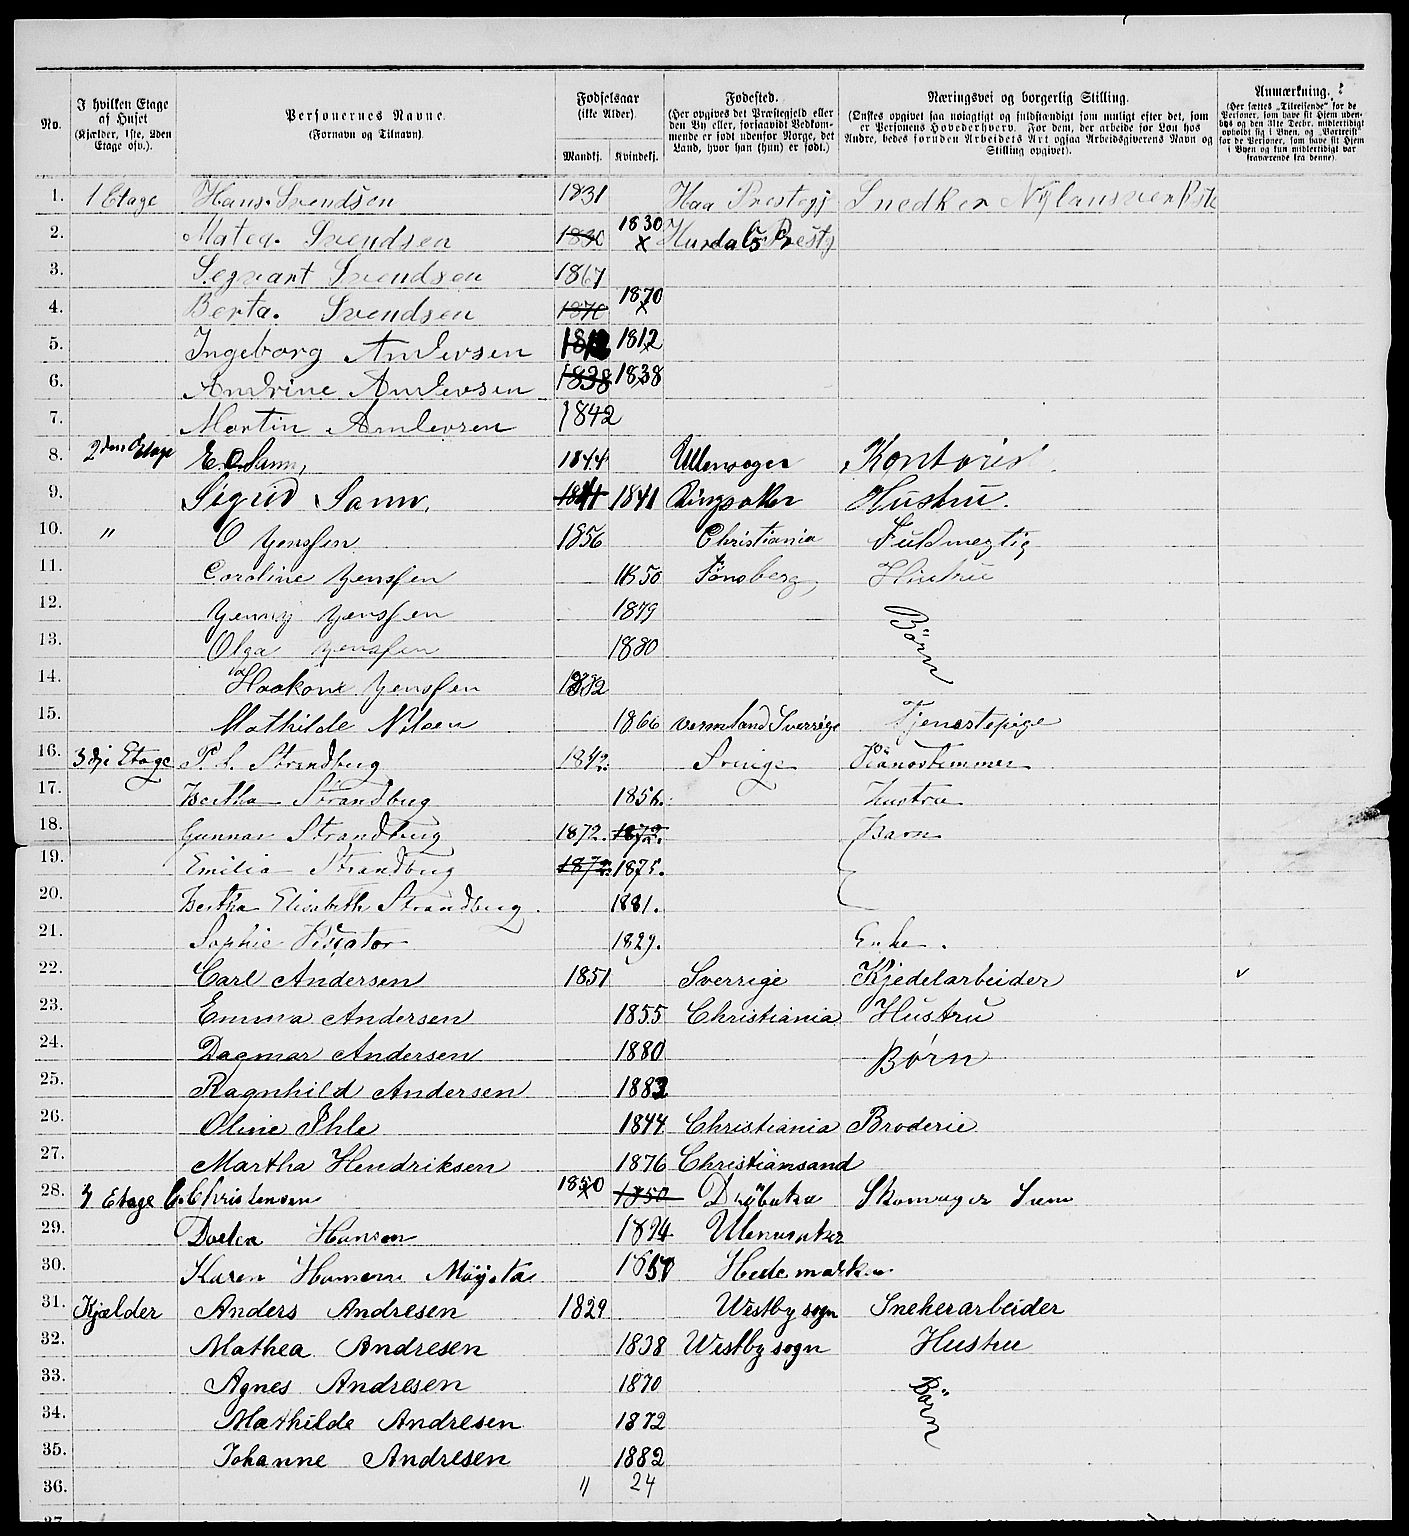 No. I hvilken Etage af Huset (Kjælder, 1ste, 2den Etage osv.). Personernes Navne. (Fornavn og Tilnavn). Fødselsaar (ikke Alder). Mandkj. Kvindekj. Fødested. (Her opgives det Præstegjeld eller den By eller, forsaavidt Vedkommende er født udenfor Norge, det Land, hvor han (hun) er født.) Næringsvei og borgerlig Stilling. (Ønskes opgivet saa nøiagtigt og fuldstændigt som muligt efter det, som er Personens Hovederhverv. For dem, der arbeide for Løn hos Andre, bedes foruden Arbeidets Art ogsaa Arbeidsgiverens Navn og Stilling opgivet). Anmærkning. (Her sættes „Tilreisende" for de Personer, som have sit Hjem udenbys og den 31te Decbr. midlertidigt opholdt sig i Byen, og „Bortreist" for de Personer, som have sit Hjem i Byen og kun midlertidigt var fraværende fra denne).
1. 1 Etage Hans Svendsen 1831 Haa Prestegj Snedker Nylansverkste
2. Matea. Svendsen 1830 1830 x Hurdals Prestg
3. Segvart Svendsen 1867
4. Berta. Svendsen 1870 1870 x
5. Ingeborg Andersen 1812 1812
6. Andrine Andersen 1838 1838
7. Martin Andersen 1842
8. 2den Etage E. O. Sann, 1844 Ullensager Kontorist
9. Sigrid Sann, 1841 1841 Ringsaker Hustru.
10. " O Jenssen 1856 Christiania Fuldmegtig
11. Caroline Jenssen 1850 Tønsberg, Hustru
12. Jenny Jenssen 1879 Børn
13. Olga Jenssen 1880
14. Haakon Jenssen 1882
15. Mathilde Nilsen 1866 Vermland Sverrige Tjenestepige
16. 3dje Etage P. L. Strandberg 1842. Sverige Pianostemmer
17. Bertha Strandberg 1856. Hustru
18. Gunnar Strandberg 1872. 1872. Barn
19. Emilia Strandberg 1872. 1875.
20. Bertha Elisabeth Strandberg. 1881.
21. Sophie Piscator 1829. Enke.
22. Carl Andersen 1851 Sverrige Kjedelarbeider v
23. Emma Andersen 1855 Christiania Hustru
24. Dagmar Andersen 1880 Børn
25. Ragnhild Andersen 1883
26. Oline Ihle 1844 Christiania Broderie
27. Martha Hendriksen 1876 Christiansand
28. Etage C. Christensen 1850 1850 Drøbak Skomager Svend
29. Hansen 1824 Ullensaker
30. Karen 1850 Hedemarken
31. Kjælder Anders Andresen 1829 Westby sogn Snekerarbeider
32. Mathea Andresen 1838 Westby sogn Hustru
33. Agnes Andresen 1870 Børn
34. Mathilde Andresen 1872
35. Johanne Andresen 1882
36. 11 24
37.